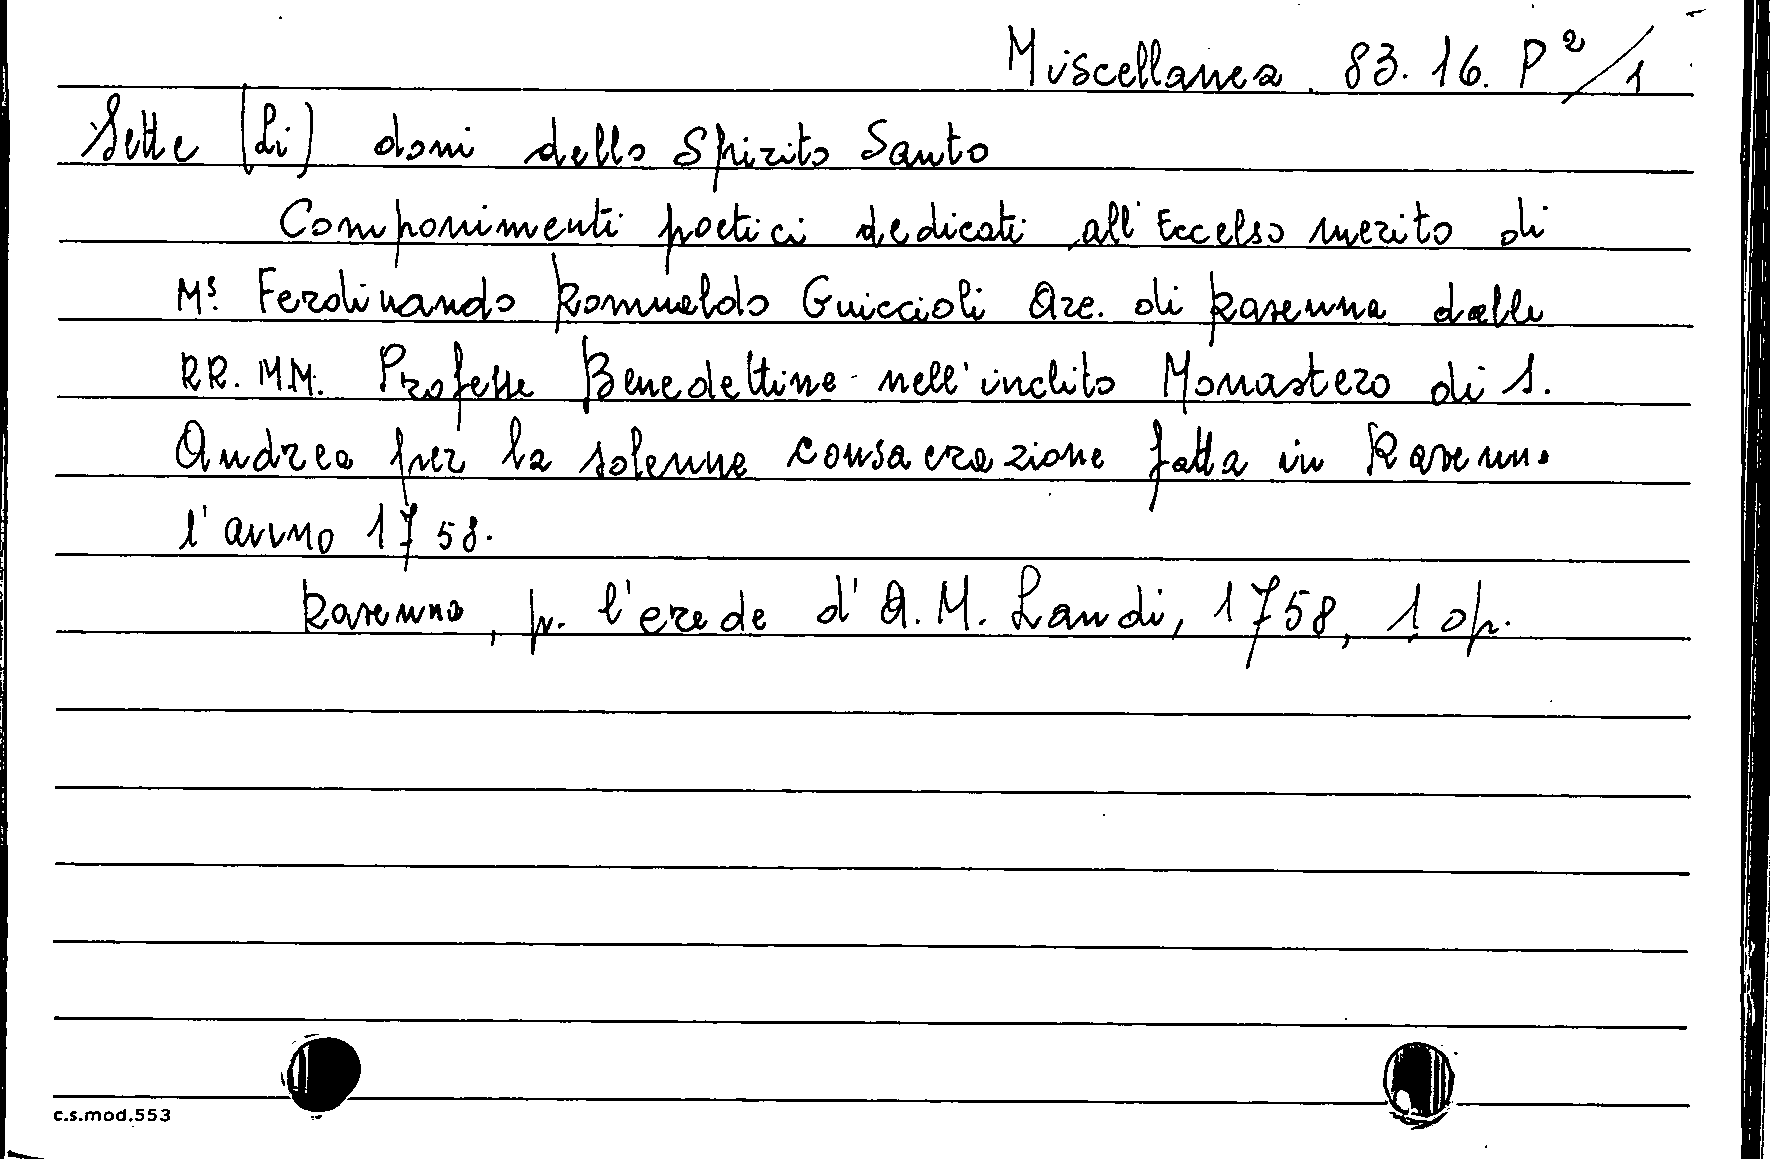 Miscellanea. 83. 16. P²/1
Sette (Li) doni dello Spirito Santo
Componimenti poetici dedicati all'Eccelso merito di
Mˢ. Ferdinando Romualdo Guiccioli Are. di Ravenna dalle
RR. MM. Professe Benedettine nell'inclito Monastero di S.
Andrea per la solenne consacrazione fatta in Ravenna
l'anno 1758.
Ravenna, p. l'erede d'A. M. Landi, 1758, 1 op.
c.s.mod.553